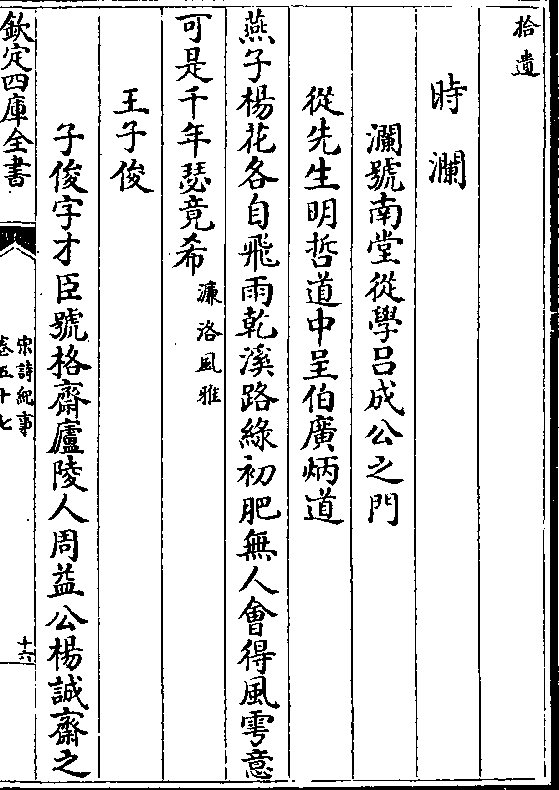 拾遺
時瀾
瀾號南堂從學呂成公之門
從先生明哲道中呈伯廣炳道
燕子楊花各自飛雨乾溪路綠初肥無人會得風雩意
可是千年瑟竟希濂洛風雅
王子俊
子俊字才臣號格齋廬陵人周益公楊誠齋之
欽定四庫全書
宋詩紀事
卷五十七
十六